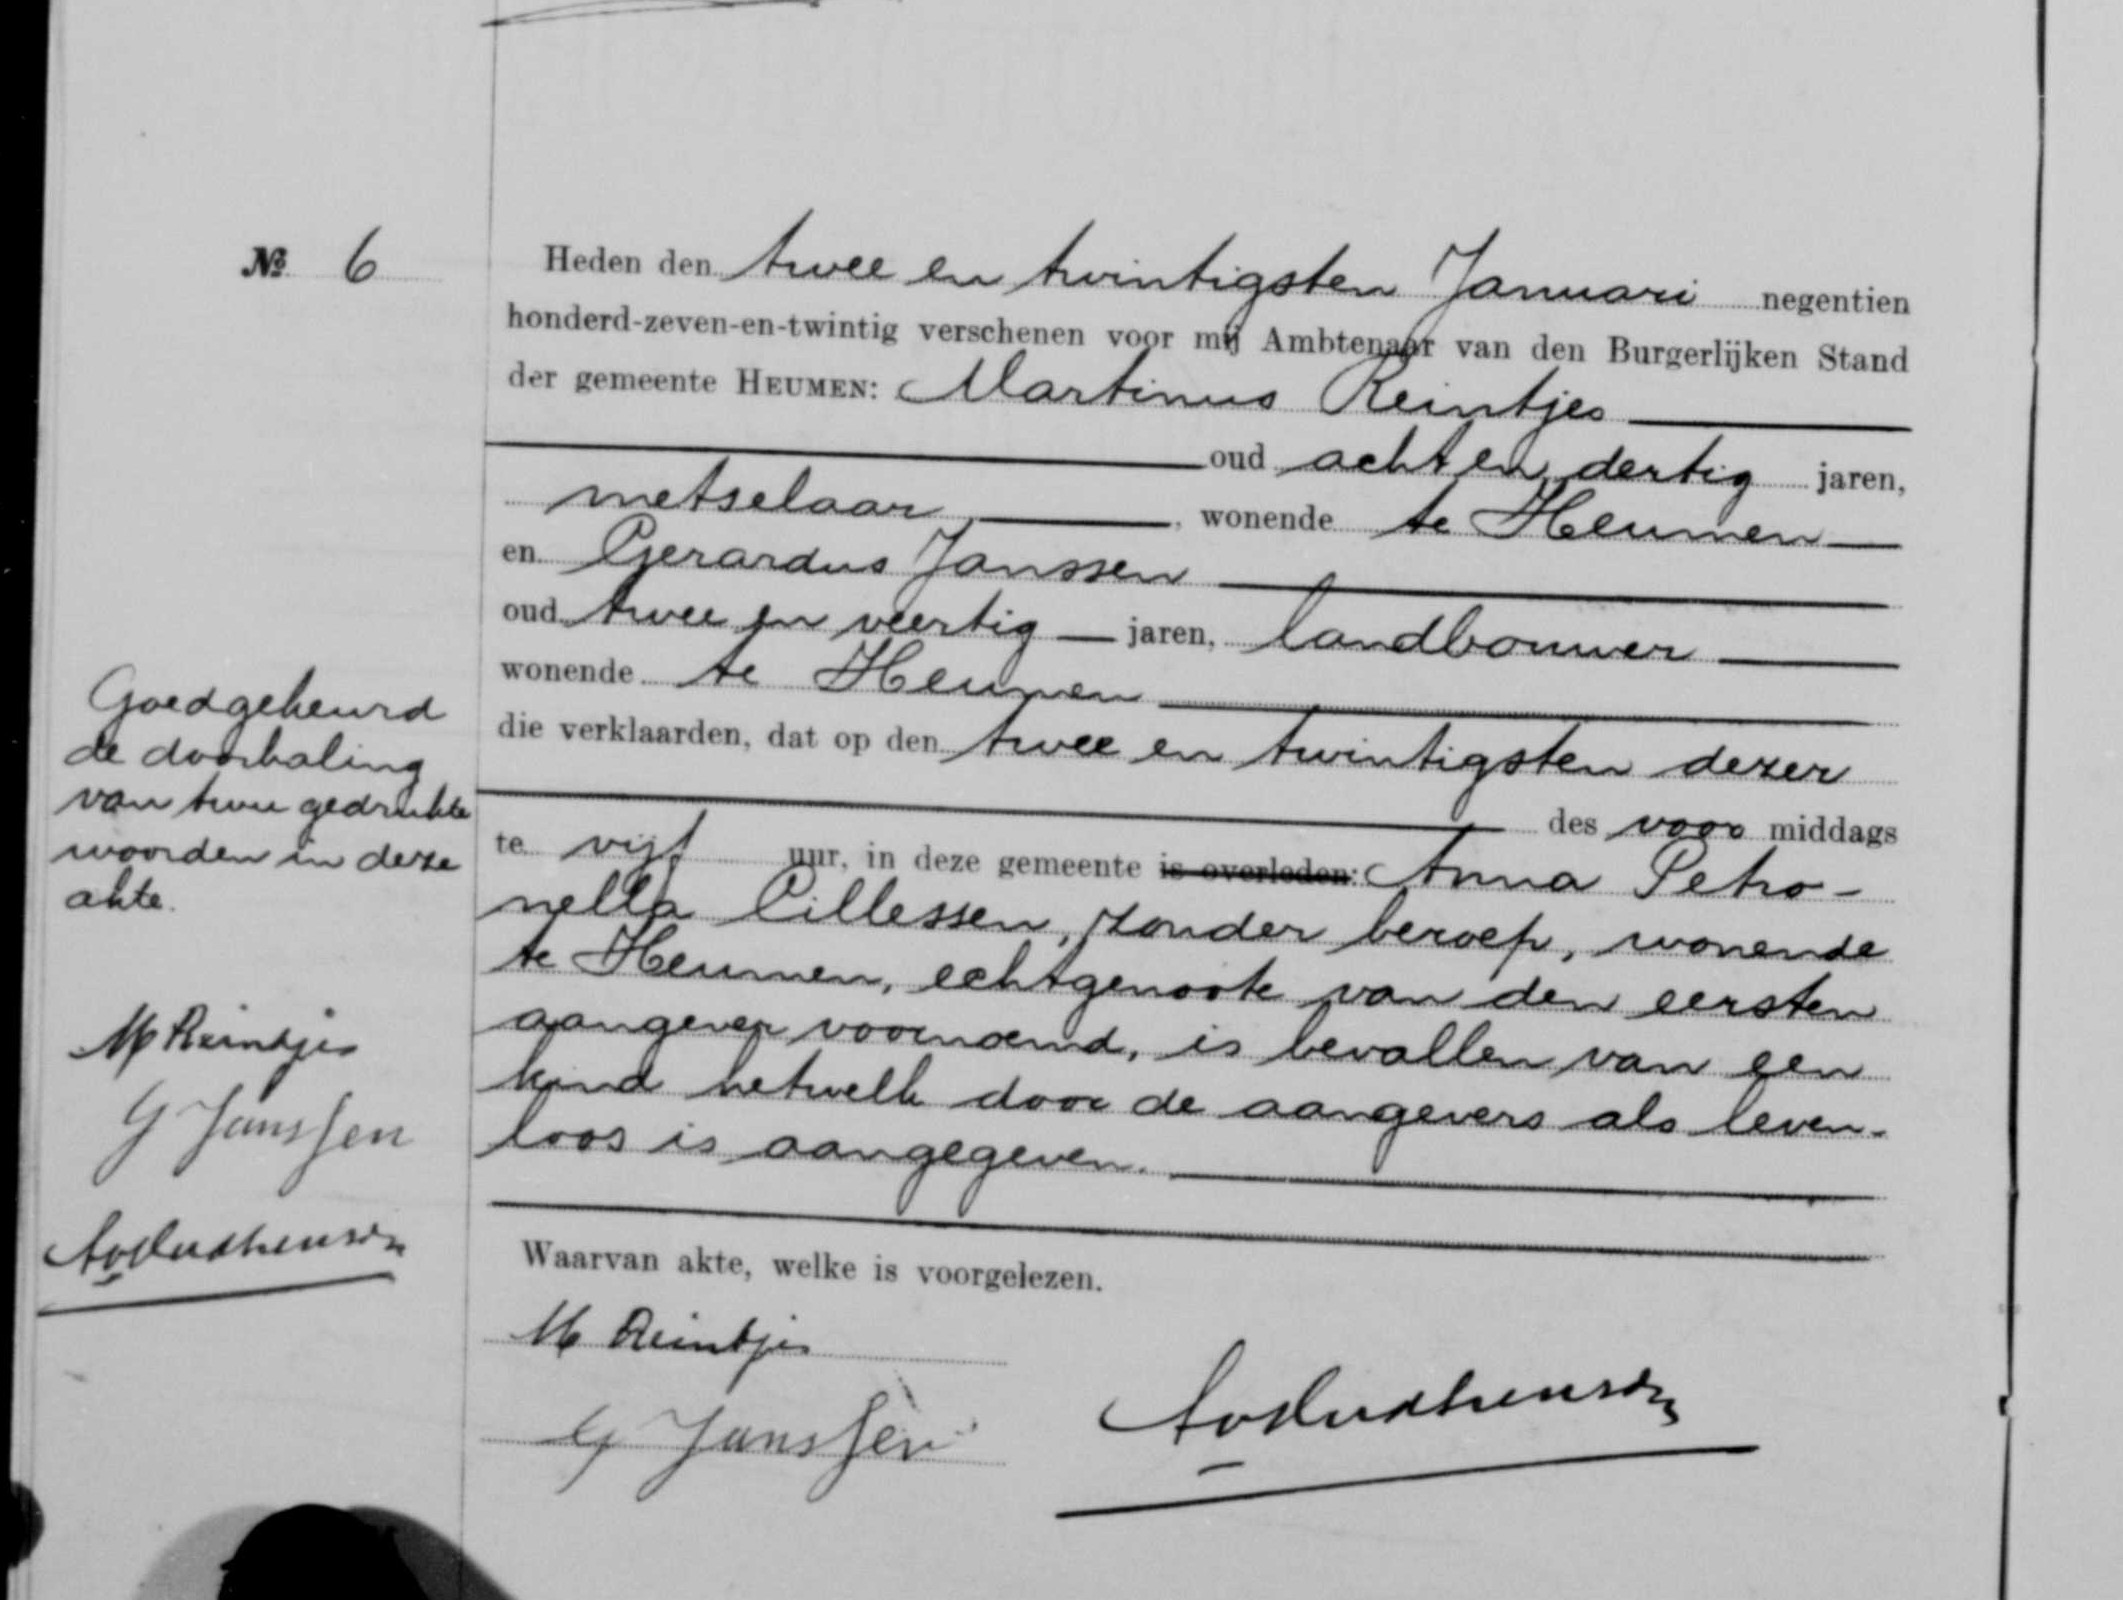 № 6
Heden den twee en twintigsten Januari negentien
honderd-zeven-en-twintig verschenen voor mij Ambtenaar van den Burgerlijken Stand
der gemeente HEUMEN: Martinus Reintjes
oud acht en dertig jaren,
metselaar, wonende te Heumen
en Gerardus Janssen
oud twee en veertig jaren, landbouwer
wonende te Heumen
die verklaarden, dat op den twee en twintigsten dezer
des voor middags
te vijf uur, in deze gemeente is overleden: Anna Petro-
nella Cillessen, zonder beroep, wonende
te Heumen, echtgenoote van den eersten
aangever voornoemd, is bevallen van een
kind hetwelk door de aangevers als leven-
loos is aangegeven.
Waarvan akte, welke is voorgelezen.
M Reintjes
G Janssen
Goedgekeurd
de doorhaling
van twee gedrukte
woorden in deze
akte.
M Reintjes
G Janssen